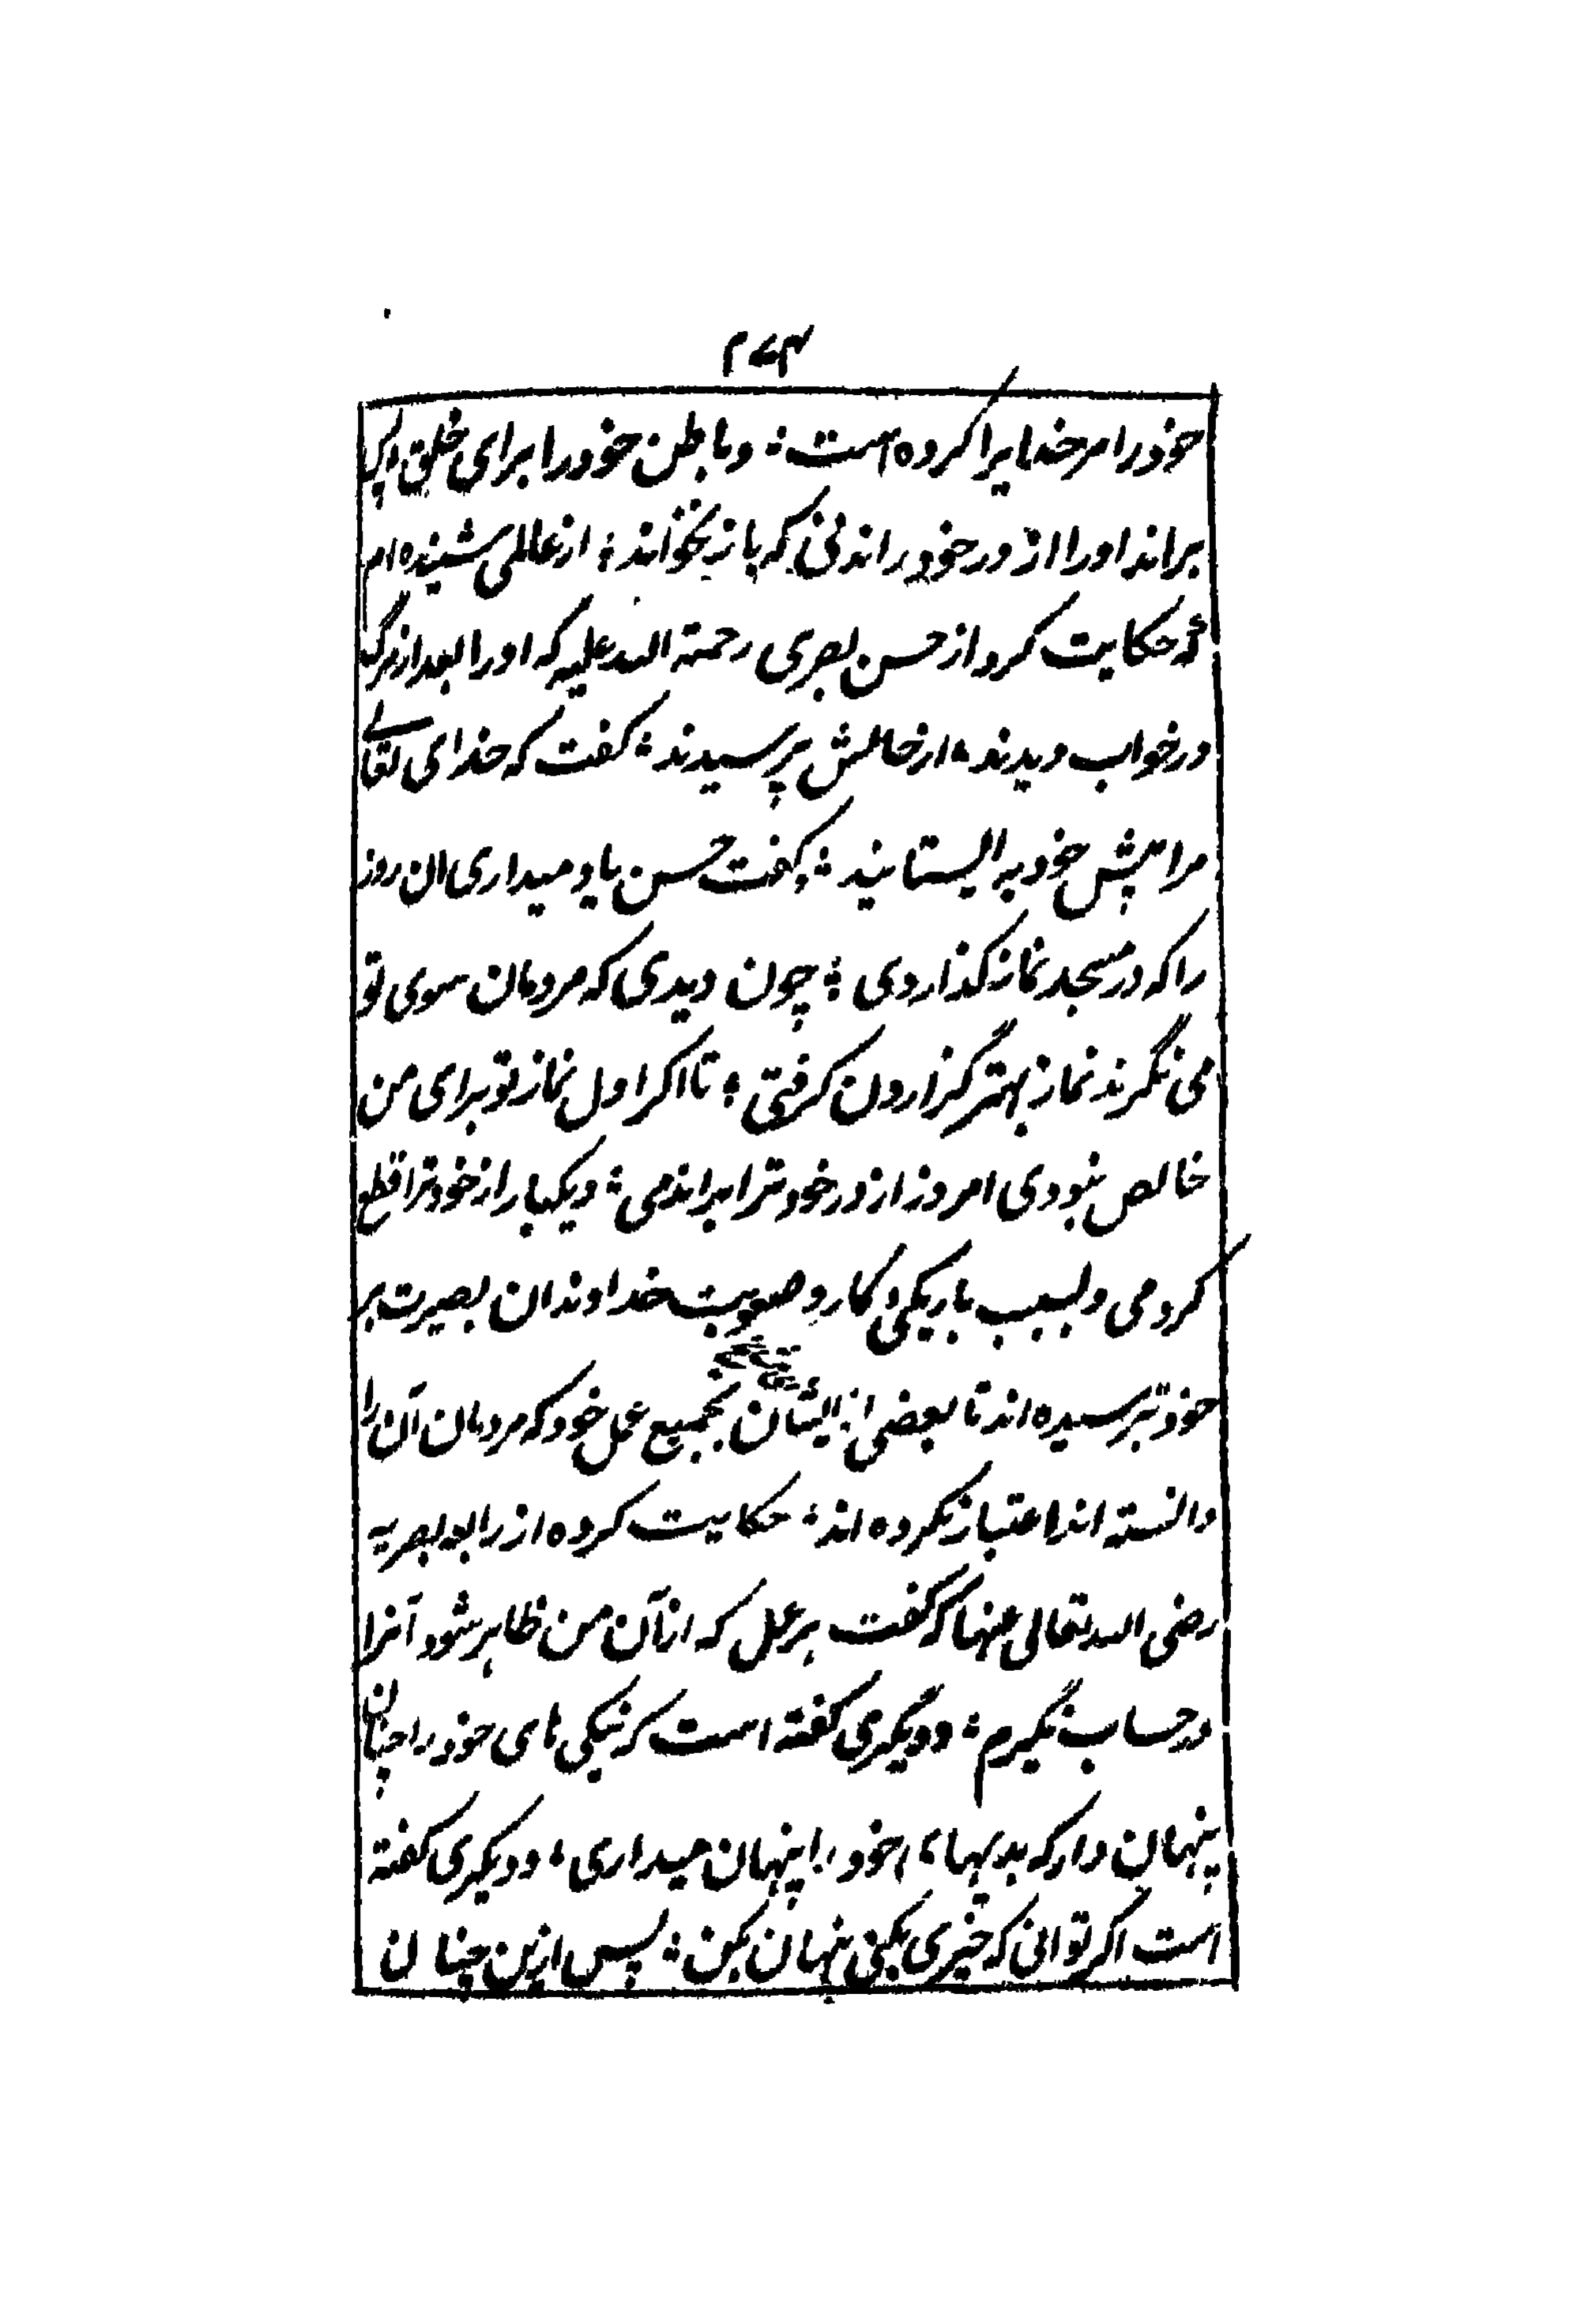 ۲۷۴
خود را مر خدایرا کرده است؛ و باطن خود را برای خلق پس
براند او را از در خود راندنی که باز نخواند؛ از عالمی شنیده ام
که حکایت کرد از حسن بصری رحمة الله علیه که او را بعد از مرگ
در خواب دیدند؛ از حالش پرسیدند؛ کفت که خدای تعالے
مرا پیش خود به ایستانید؛ کفت حسن یاد میداری ان روز
را که در مسجد نماز کذاردی؛ چون دیدی که مردمان سوی تو
می نگرند نماز بهتر گزاردن کرفتی؛ تا اکر اول نماز تو برای من
خالص نبودی امروز از در خود ترا براندمی؛ و یکبار از خود ترا قطع
کردمی و بسبب باریکی کار و صعوبت خداوندان بصیرت بر
خود بترسیده اند تا بعضی از ایشان بجمیع عمل خود که مردمان آن را
دانسته اند اعتبار نکرده اند؛ حکایت کرده از رابعه بصریه
رضی الله تعالی عنها که کفت هر عمل که از آن من ظاهر شود آنرا
در حساب نگیرم؛ و دیگری کفته است که نیکی های خود را چنان
پنهان دار که بدیهاء خود را پنهان میداری؛ و دیکری کفته
است اکر توانی که خیری بکنی پنهان بکن؛ پس ازین چنان